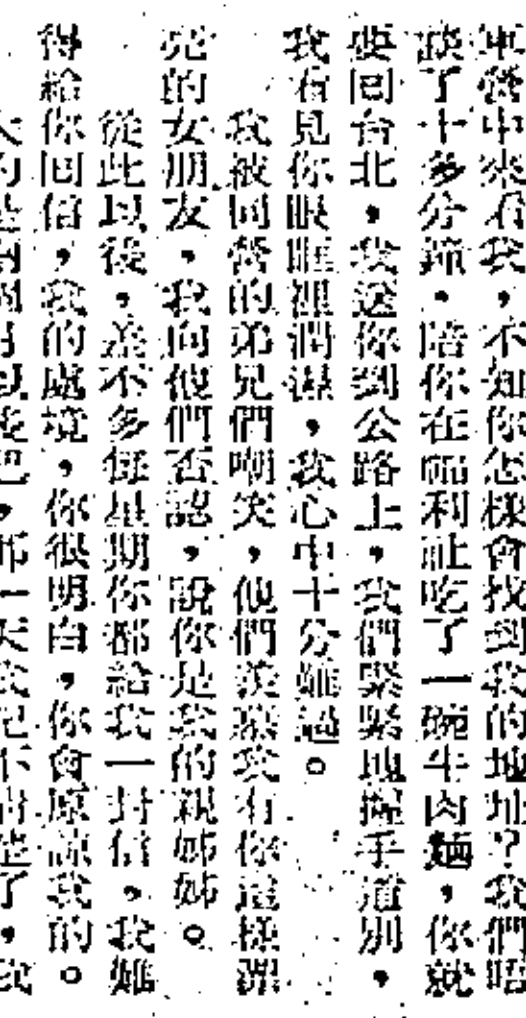 軍營中來看我，不知你怎樣會找到我的地址？我們晤
談了十多分鐘，陪你在福利社吃了一碗牛肉麵，你就
要回台北，我送你到公路上，我們緊緊地握手道別，
我看見你眼眶裡潤濕，我心中十分難過。
我被同營的弟兄們嘲笑，他們羨慕我有你這樣漂
亮的女朋友，我向他們否認，說你是我的親姊姊。
從此以後，差不多每星期你都給我一封信，我難
得給你回信，我的處境，你很明白，你會原諒我的。